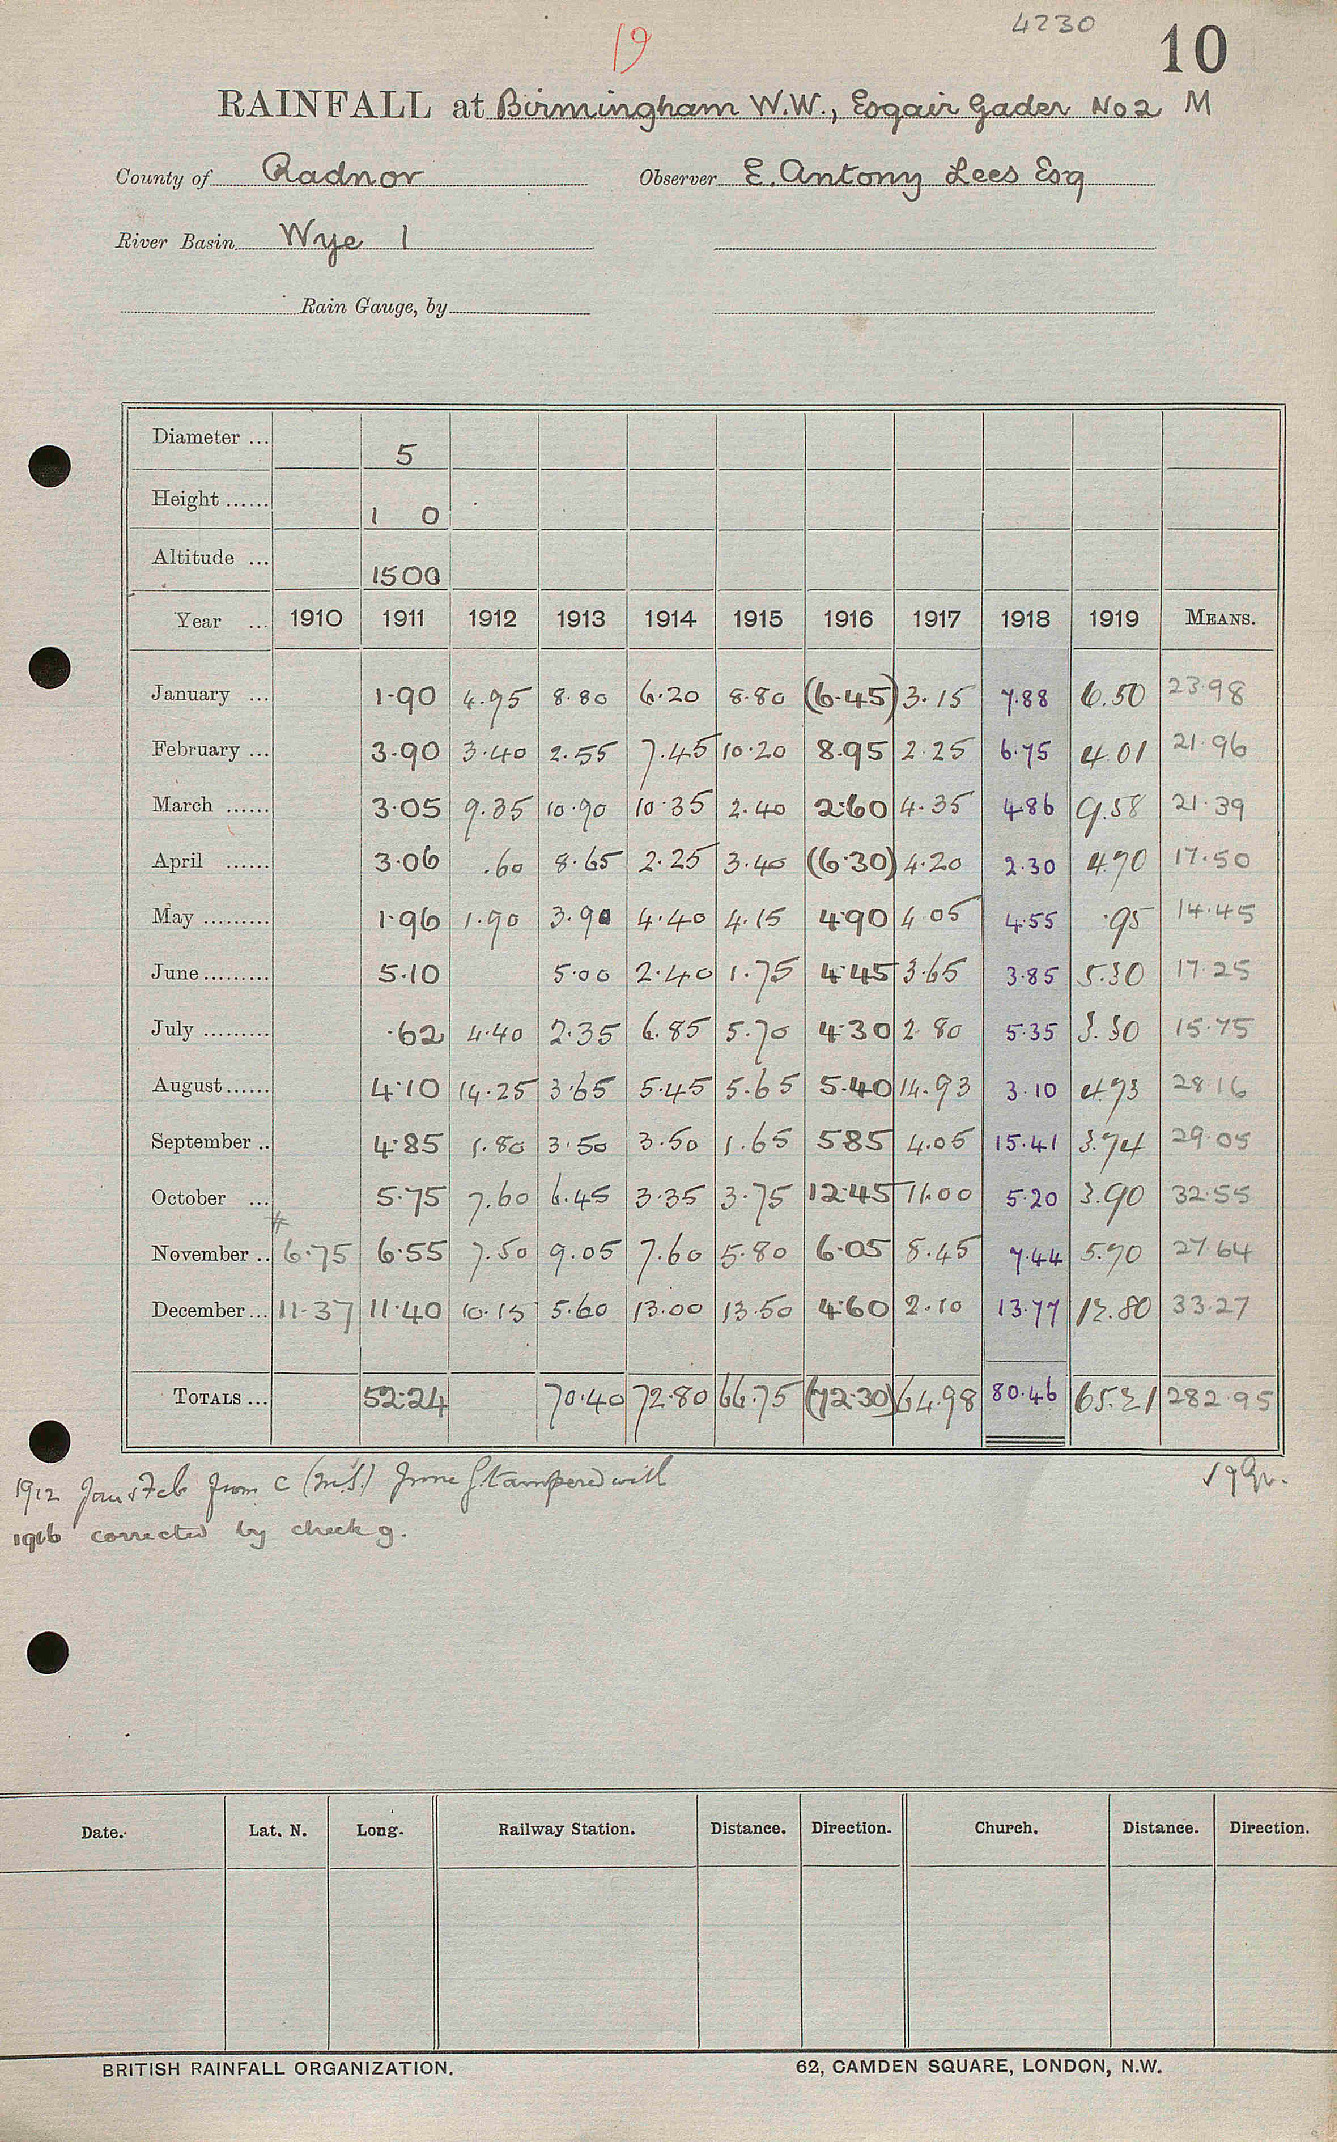 4230
19
10
RAINFALL at Birmingham W.W., Esgair Gader No 2 M
County of Radnor Observer E. Antony Lees Esq
River Basin Wye 1
Rain Gauge, by
Diameter ... 5
Height ...... 1 0
Altitude ... 1500
Year ... 1910 1911 1912 1913 1914 1915 1916 1917 1918 1919 MEANS.
January ... 1.90 4.95 8.80 6.20 8.80 (6.45) 3.15 7.88 6.50 23.98
February ... 3.90 3.40 2.55 7.45 10.20 8.95 2.25 6.75 4.01 21.96
March ...... 3.05 9.35 10.90 10.35 2.40 2.60 4.35 4.86 9.58 21.39
April ...... 3.06 .60 8.65 2.25 3.40 (6.30) 4.20 2.30 4.70 17.50
May ......... 1.96 1.90 3.90 4.40 4.15 4.90 4.05 4.55 .95 14.45
June ......... 5.10 5.00 2.40 1.75 4.45 3.65 3.85 5.30 17.25
July ......... .62 4.40 2.35 6.85 5.70 4.30 2.80 5.35 3.30 15.75
August ...... 4.10 14.25 3.65 5.45 5.65 5.40 14.93 3.10 4.93 28.16
September .. 4.85 1.80 3.50 3.50 1.65 5.85 4.05 15.41 3.74 29.05
October ... 5.75 7.60 6.45 3.35 3.75 12.45 11.00 5.20 3.90 32.55
November .. 6.75 6.55 7.50 9.05 7.60 5.80 6.05 8.45 7.44 5.70 27.64
December ... 11.37 11.40 10.15 5.60 13.00 13.50 4.60 2.10 13.77 12.80 33.27
TOTALS ... 52.24 70.40 72.80 66.75 (72.30) 64.98 80.46 65.21 282.95
1912 Jan & Feb from C (M.S.) June G. tampered with
1916 corrected by check g.
Date. Lat. N. Long. Railway Station. Distance. Direction. Church. Distance. Direction.
BRITISH RAINFALL ORGANIZATION. 62, CAMDEN SQUARE, LONDON, N.W.